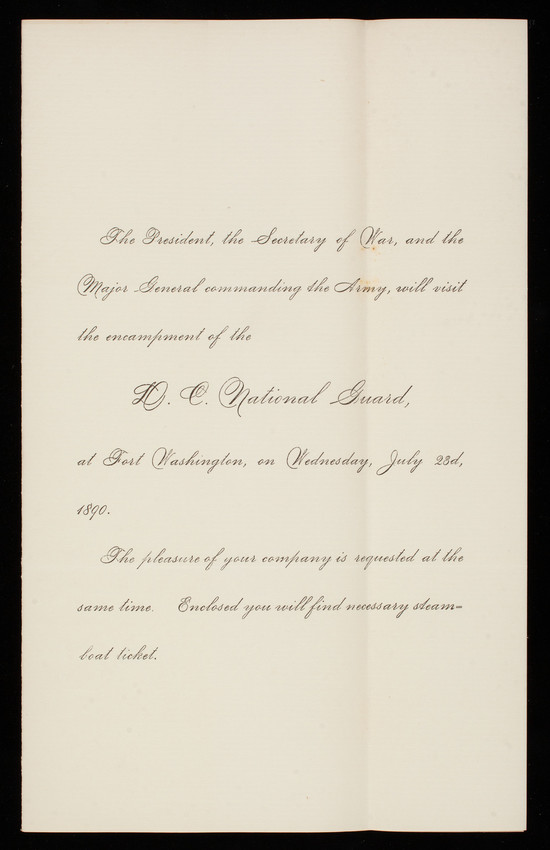 The President, the Secretary of War, and the
Major General commanding the Army, will visit
the encampment of the
D. C. National Guard,
at Fort Washington, on Wednesday, July 23d,
1890.
The pleasure of your company is requested at the
same time. Enclosed you will find necessary steam=
boat ticket.